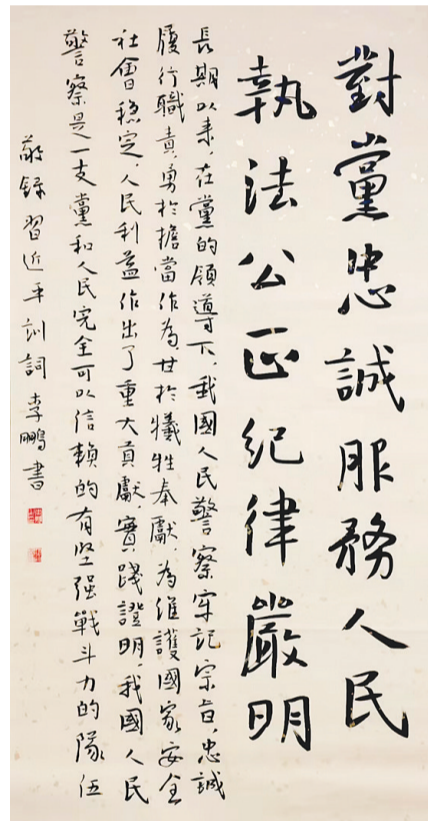 對黨忠誠服務人民
執法公正紀律嚴明
長期以来，在黨的領導下，我國人民警察牢記宗旨，忠誠
履行職責，勇於擔當作為，甘於犧牲奉獻，為維護國家安全
社會穩定，人民利益作出了重大貢獻，實踐證明，我國人民
警察是一支黨和人民完全可以信賴的有坚强戰斗力的隊伍
敬録習近平訓詞 李鵬書